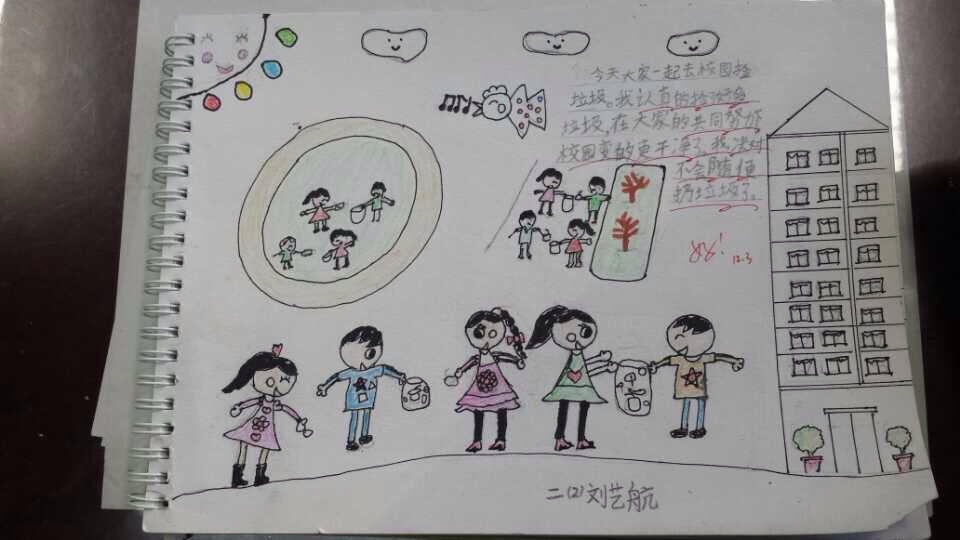 今天大家一起去校园捡
垃圾。我认真的捡
垃圾,在大家的共同努力下
校园变的更干净了,我决对
不会随便
扔垃圾了。
好! 12.3
二(2)刘艺航